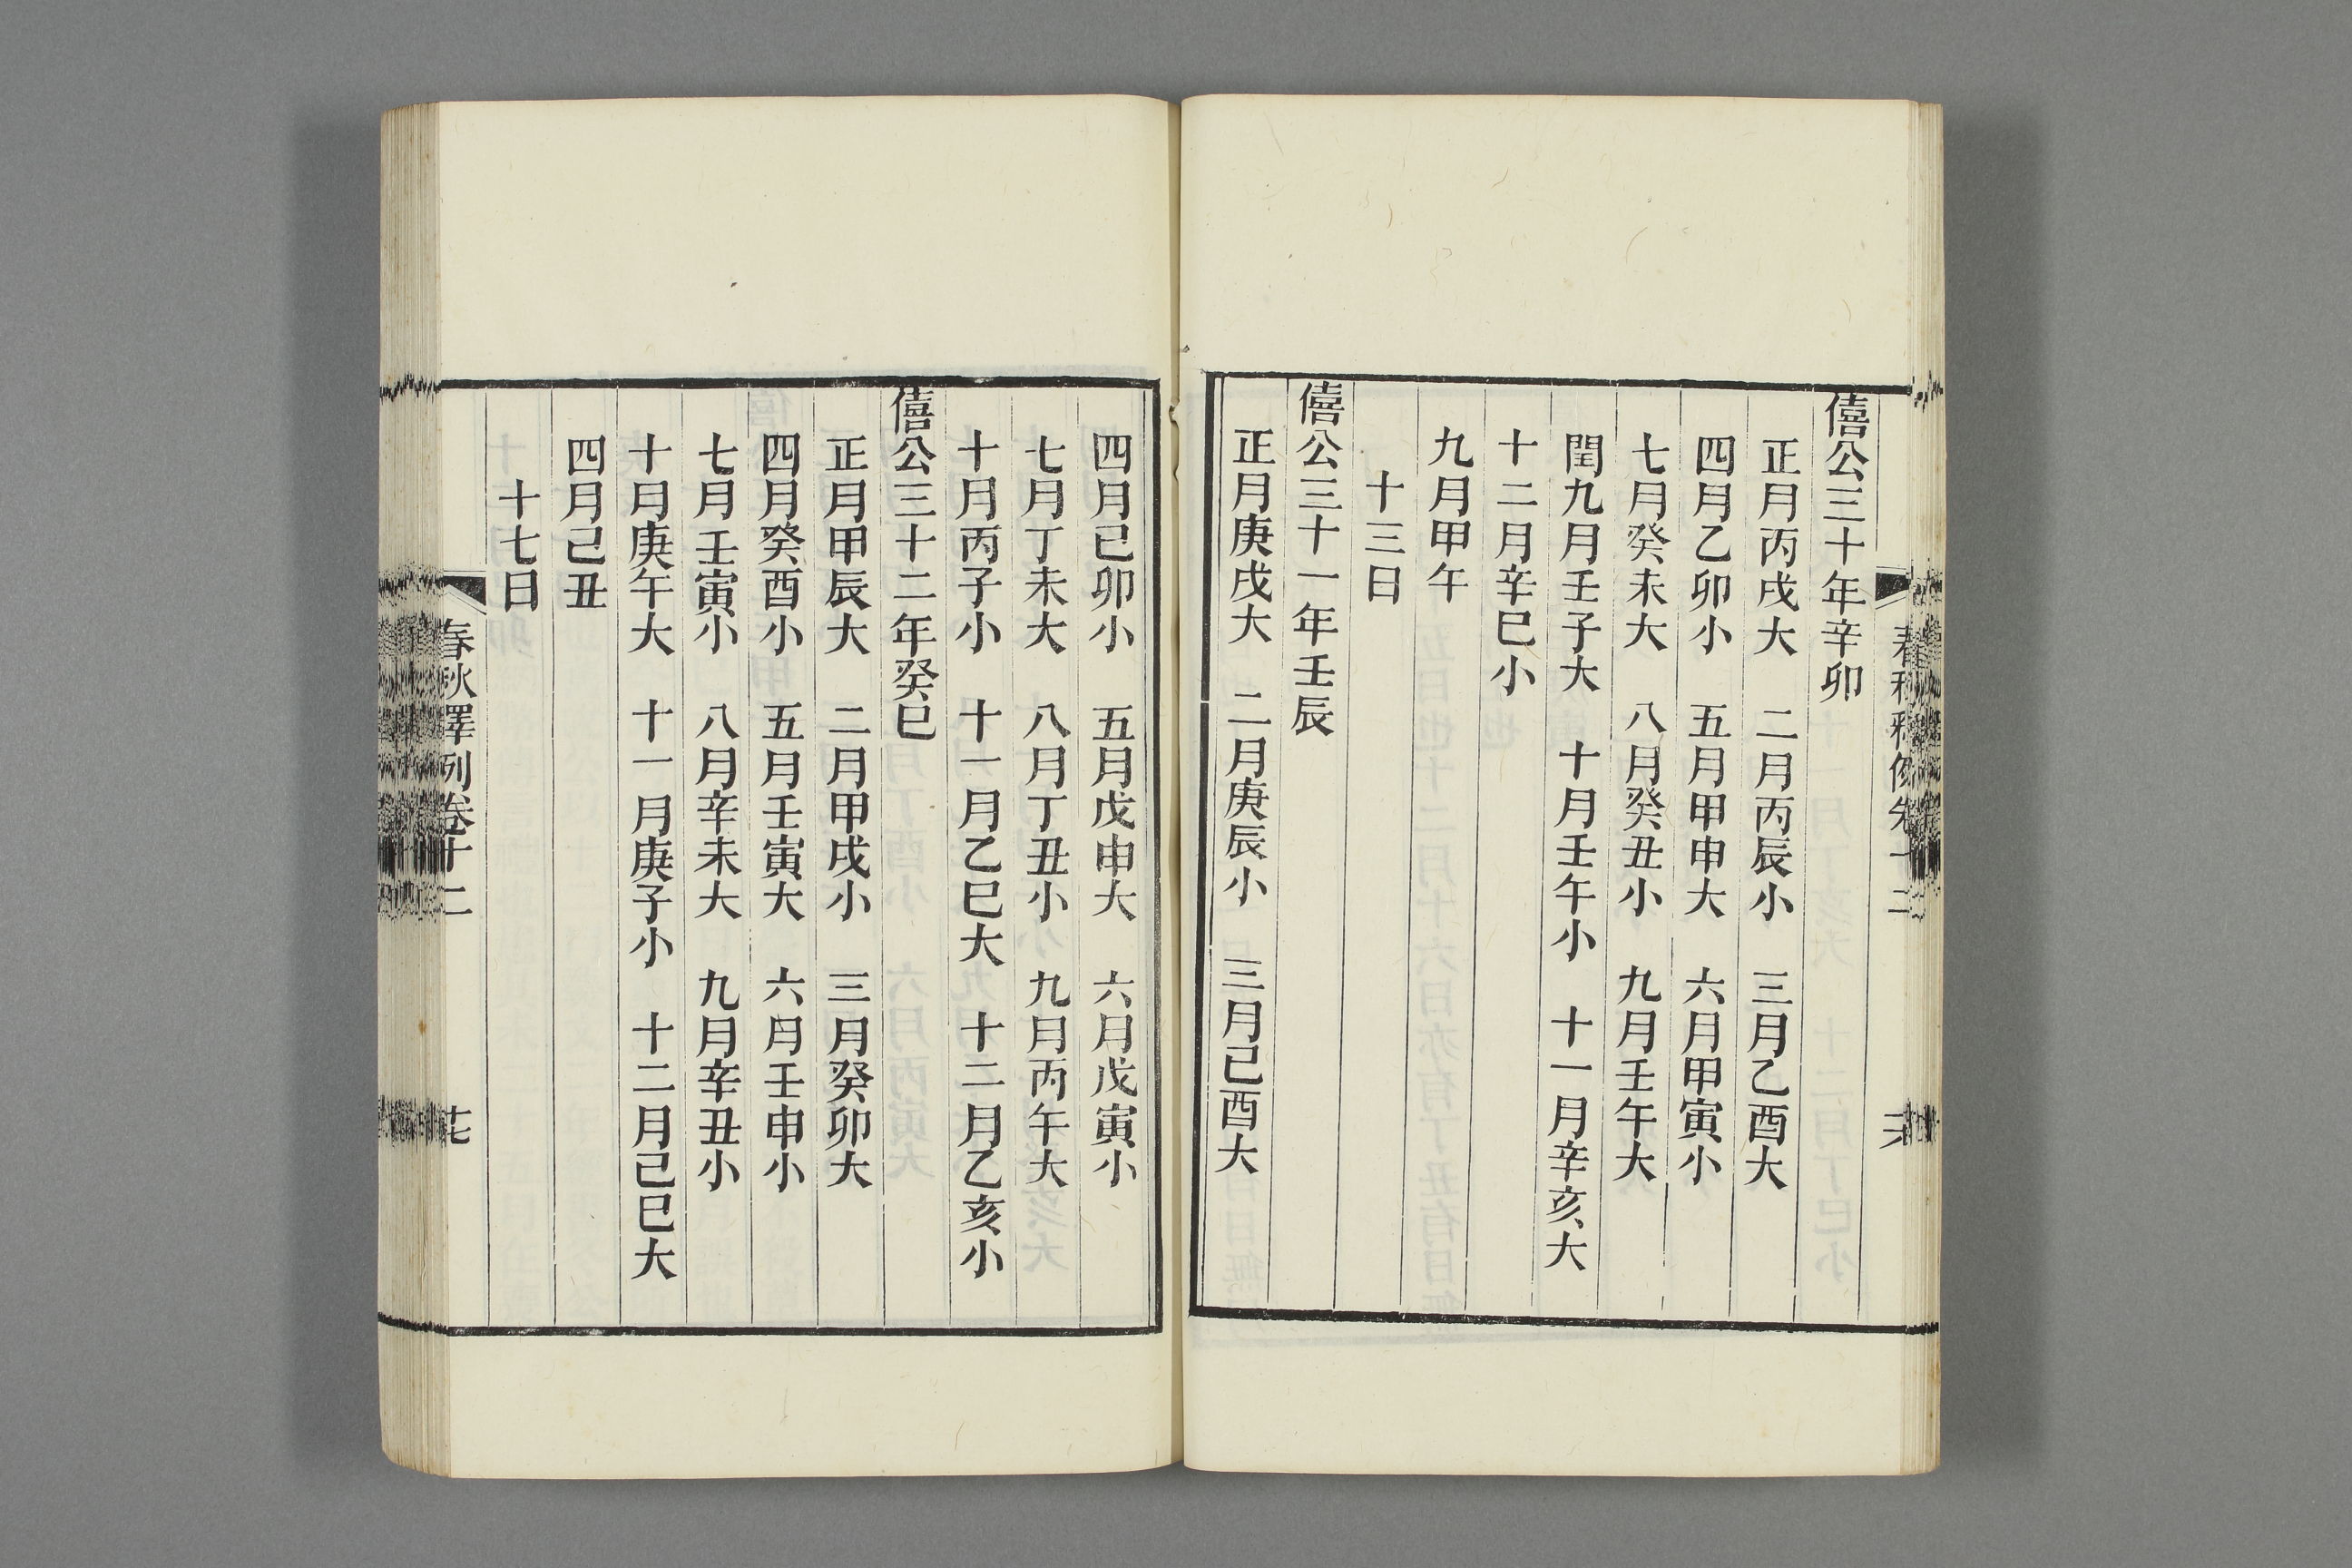 僖公三十年辛卯
正月丙戌大　二月丙辰小　三月乙酉大
四月乙卯小　五月甲申大　六月甲寅小
七月癸未大　八月癸丑小　九月壬午大
閏九月壬子大　十月壬午小　十一月辛亥大
十二月辛巳小
九月甲午
十三日
僖公三十一年壬辰
正月庚戌大　二月庚辰小　三月己酉大
四月己卯小　五月戊申大　六月戊寅小
七月丁未大　八月丁丑小　九月丙午大
十月丙子小　十一月乙巳大　十二月乙亥小
僖公三十二年癸巳
正月甲辰大　二月甲戌小　三月癸卯大
四月癸酉小　五月壬寅大　六月壬申小
七月壬寅小　八月辛未大　九月辛丑小
十月庚午大　十一月庚子小　十二月己巳大
四月己丑
十七日
春秋釋例卷十二